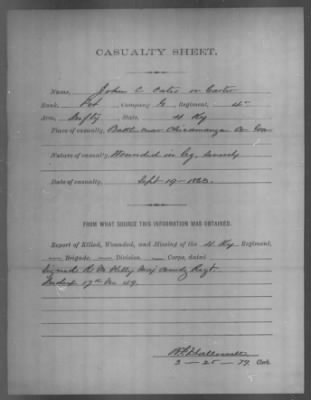 CASUALTY SHEET.
Name, John C Cates or Carter
Rank, Pvt Company G Regiment, 4"
Arm, Infty State, 4 Ky
Place of casualty, Battle near Chicamauga Ga
Nature of casualty, Wounded in leg, severely
Date of casualty, Sept 19-1863.
FROM WHAT SOURCE THIS INFORMATION WAS OBTAINED.
Report of Killed, Wounded, and Missing of the 4 Ky Regiment,
— Brigade, — Division, — Corps, dated
Signed R. M. Kelly Maj Comdg Regt
17th 49.
3-25-79